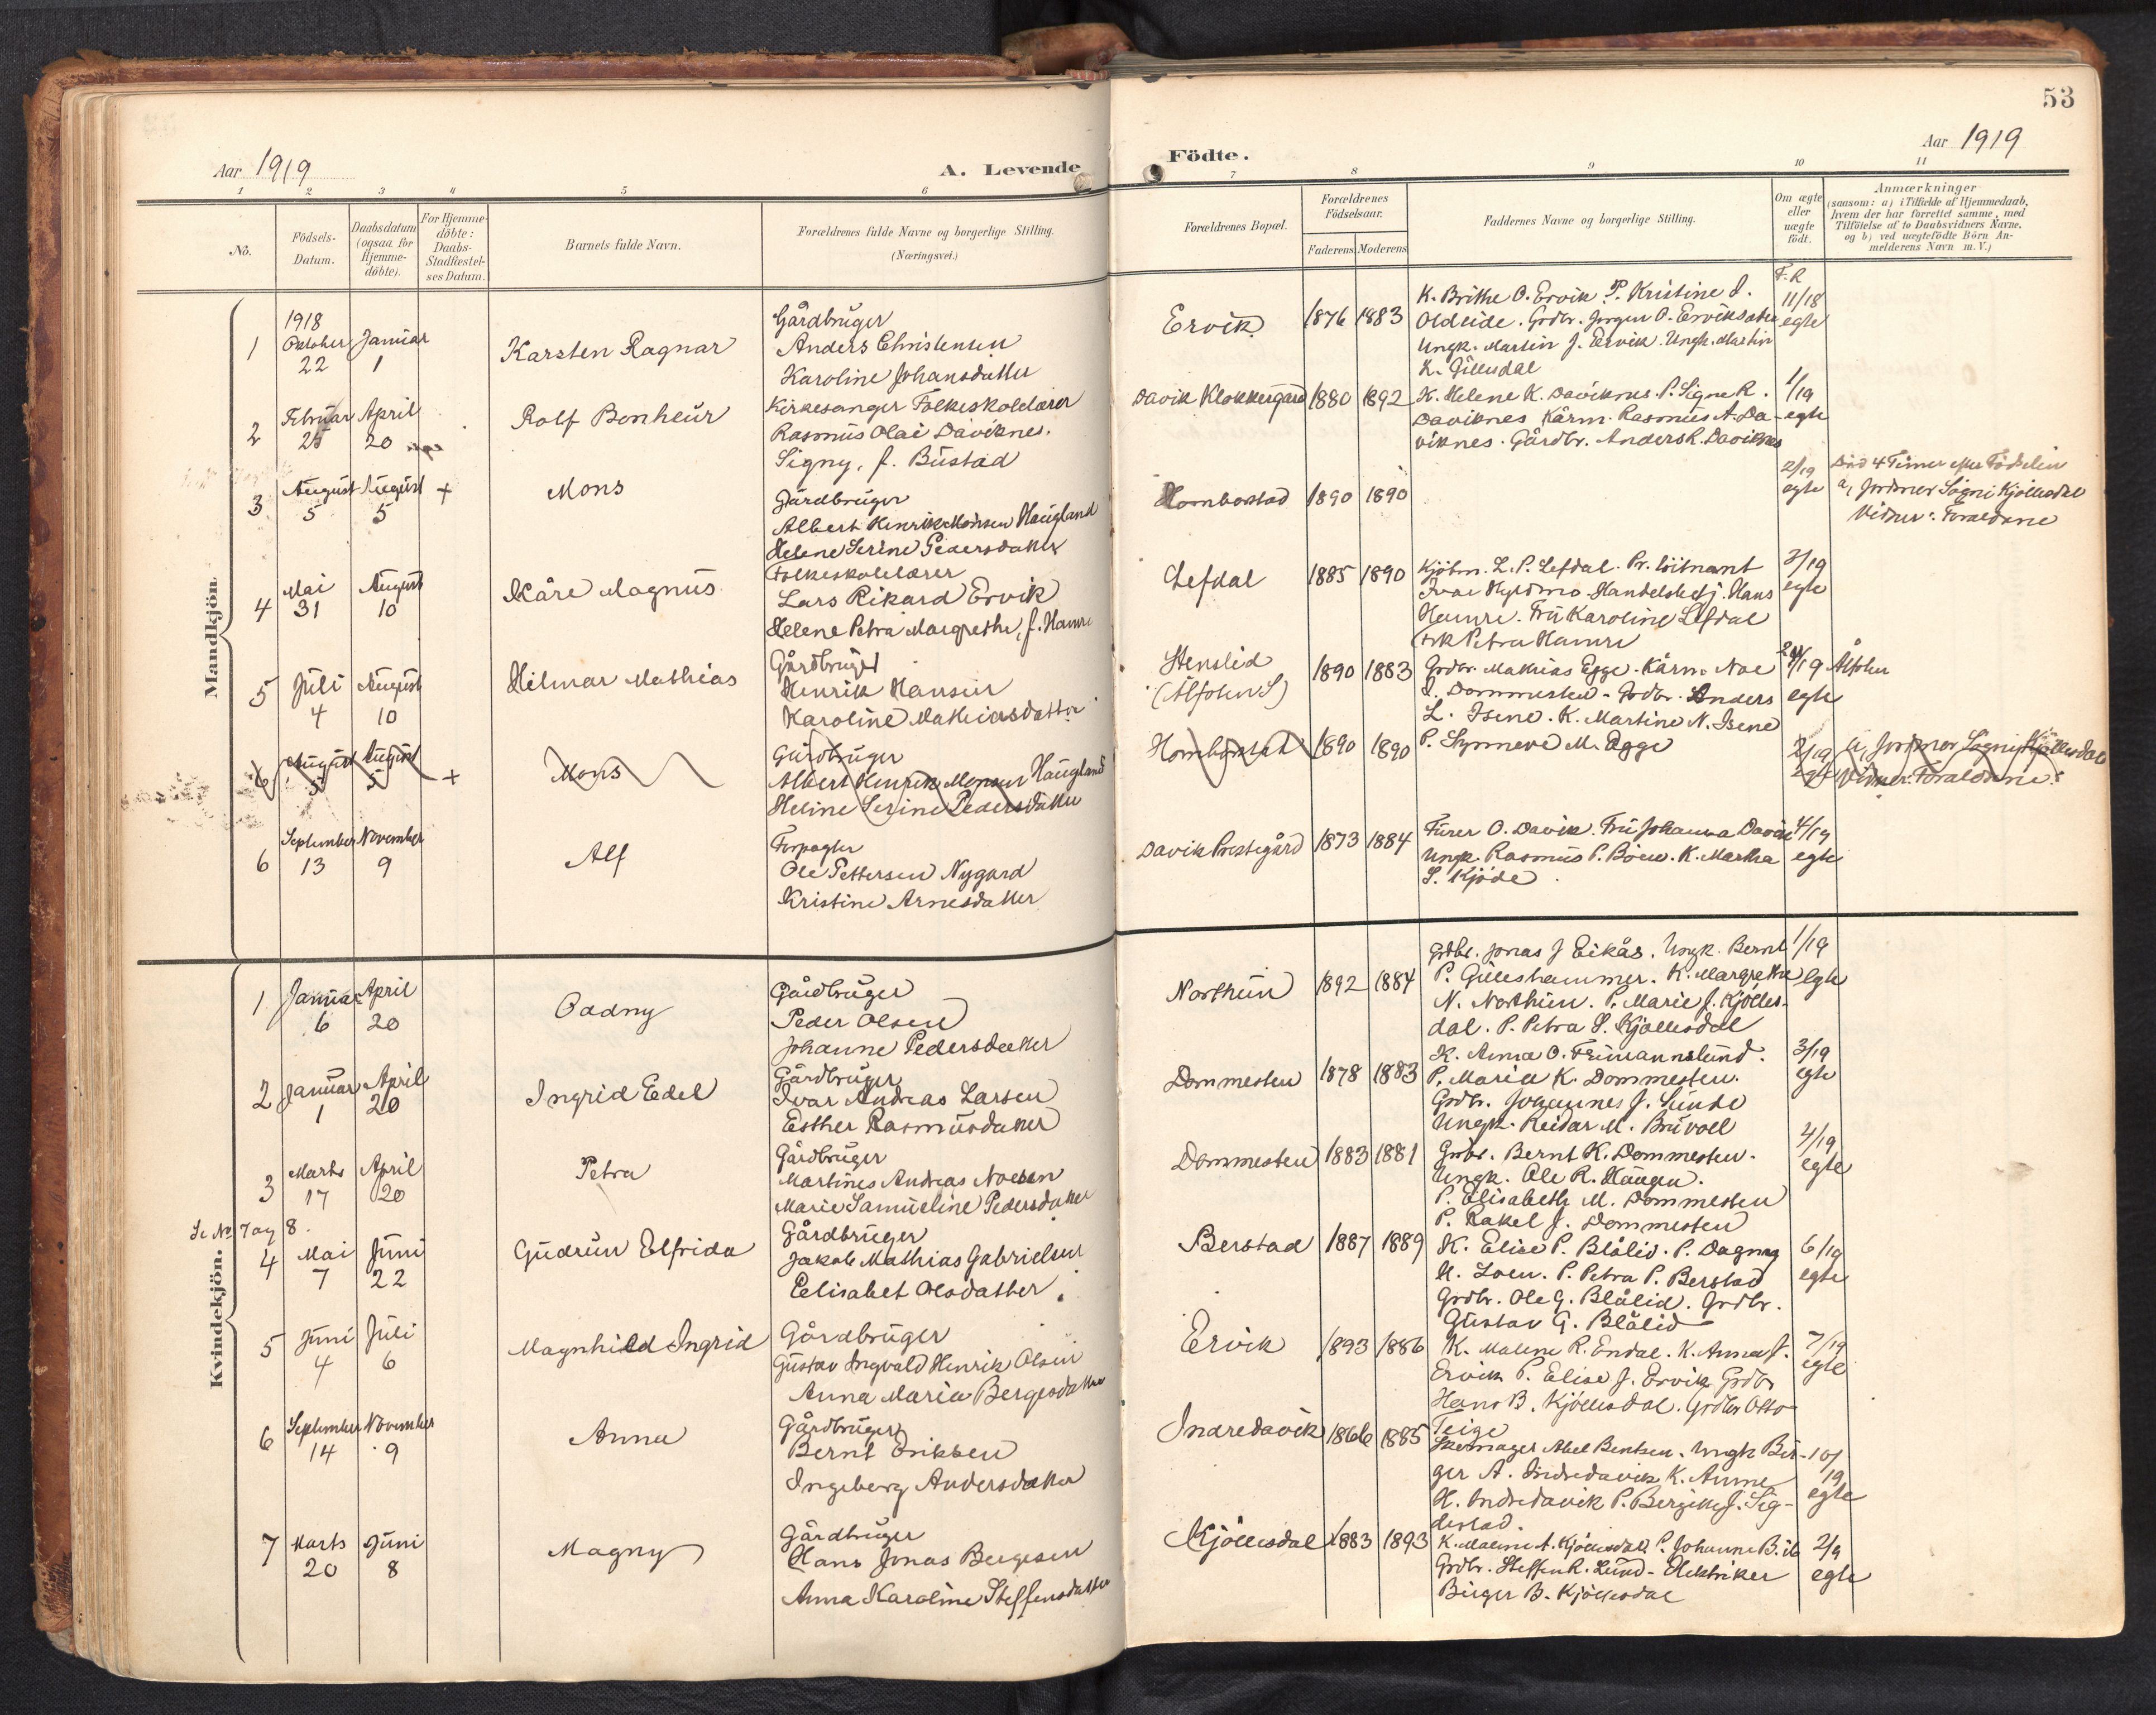 53
Aar 1919
A. Levende
Födte.
Aar 1919
1 2 3 4 5 6 7 8 9 10 11
No.
Födsels-
Datum.
Daabsdatum
(ogsaa for
Hjemme-
döbte).
For Hjemme-
döbte:
Daabs-
Stadfæstel-
ses Datum.
Barnets fulde Navn.
Forældrenes fulde Navne og borgerlige Stilling.
(Næringsvei.)
Forældrenes Bopæl.
Forældrenes
Födselsaar.
Faderens Moderens
Faddernes Navne og borgerlige Stilling.
Om ægte
eller
uægte
födt.
Anmærkninger
(saasom: a) i Tilfælde af Hjemmedaab,
hvem der har forrettet samme, med
Tilföielse af to Daabsvidners Navne,
og b) ved uægtefödte Börn An-
melderens Navn m. V.)
Mandkjön.
1
1918
Oktober
22
Januar
1
Karsten Ragnar
Gårdbruger
Anders Christensen
Karoline Johansdatter
Ervik
1876 1883
K. Brithe O. Ervik. P. Kristine I.
Oldeide. Grdbr. Jørgen O. Erviksæter
Ungk. Martin J. Ervik. Ungk. Martin
L. Gillesdal
F. R
11/18
egte
2
Februar
25
April
20
Rolf Bonheur
Kirkesanger Folkeskolelærer
Rasmus Olai Daviknes.
Signy, f. Bustad
Davik Klokkergård
1880 1892
K. Helene K. Daviknes. P. Signe R.
Daviknes Kårm. Rasmus A. Da-
viknes. Gårdbr. Anders R. Daviknes
1/19
egte
3
August
5
August
5
+
Mons
Gårdbruger
Albert Henrik Monsen Haugland
Helene Serine Pedersdatter
Homborstad
1890 1890
2/19
egte
Død 4 Timer efter Fødselen
a, Jordmor Sogni Kjøllesdal
Vidner: Forældrene
4
Mai
31
August
10
Kåre Magnus
Folkeskolelærer
Lars Rikard Ervik
Helene Petra Margrethe, f. Hamre
Lefdal
1885 1890
Kjøbm. L. P. Lefdal. Pr. löitnant
Ivar Hyldmo. Handelsbetj. Hans
Hamre. Fru Karoline Lefdal
Frk Petra Hamre
3/19
egte
5
Juli
4
August
10
Hilmar Mathias
Gårdbruger
Henrik Hansen
Karoline Mathiasdatter
Stenslid
(Ålfoten S)
1890 1883
Grdbr. Mathias Egge. Kårm. Noe
I. Dommesten. Grdbr. Anders
L. Isene. K. Martine N. Isene
P. Synneve M. Egge
/19
egte
Ålfoten
6
August
5
August
5
+
Mons
Gårdbruger
Albert Henrik Monsen Haugland
Heline Serine Pedersdatter
Homborstad
1890 1890
2/19
egte
a, Jordmor Sogni Kjøllesdal
Vidner: Forældrene.
6
September
13
November
9
Alf
Forpagter
Ole Pettersen Nygard
Kristine Arnesdatter
Davik Prestegård
1873 1884
Furer O. Davik. Fru Johanna Davik
Ungk. Rasmus P. Böen. K. Martha
S. Kjöde
4/19
egte
Kvindekjön.
1
Januar
6
April
20
Oadny
Gårdbruger
Peder Olsen
Johanne Pedersdatter
Northun
1892 1884
Grdbr. Jonas J Eikås. Ungk. Bernt
P. Gulleshammer. K. Margrethe
N. Northun. P. Marie J. Kjølles-
dal. P. Petra S. Kjøllesdal
1/19
egte
2
Januar
1
April
20
Ingrid Edel
Gårdbruger
Ivar Andreas Larsen
Esther Rasmusdatter
Dommesten
1878 1883
K. Anna O. Frimannslund.
P. Marie K. Dommesten.
Grdbr. Johannes J. Sunde
Ungk. Reidar M. Bruvoll
3/19
egte
3
Marts
17
April
20
Petra
Gårdbruger
Martines Andreas Noesen
Marie Samueline Pedersdatter
Dommesten
1883 1881
Grdbr. Bernt K. Dommesten.
Ungk. Ole R. Haugen.
P. Elisabeth M. Dommesten
P. Rakel J. Dommesten
4/19
egte
Se No 7 og 8.
4
Mai
7
Juni
22
Gudrun Elfrida
Gårdbruger
Jakob Mathias Gabrielsen
Elisabet Olsdatter.
Berstad
1887 1889
K. Elise P. Blålid. P. Dagny
H. Loen. P. Petra P. Berstad
Grdbr. Ole G. Blålid. Grdbr.
Gustav G. Blålid
6/19
egte
5
Juni
4
Juli
6
Magnhild Ingrid
Gårdbruger
Gustav Ingvald Henrik Olsen
Anna Maria Bergesdatter
Ervik
1893 1886
K. Malene R. Endal. K. Anna J.
Ervik P. Elise J. Ervik Grdbr
Hans B. Kjøllesdal. Grdbr Otto
Teige
7/19
egte
6
September
14
November
9
Anna
Gårdbruger
Bernt Eriksen
Ingeborg Andersdatter
Indredavik
1866 1885
Skomager Abel Bentsen. Ungk Bir-
ger A. Indredavik K. Anne
H. Indredavik P. Bergitte J. Sig-
destad.
10/
19
egte
7
Marts
20
Juni
8
Magny
Gårdbruger
Hans Jonas Bergesen
Anna Karoline Steffensdatter
Kjøllesdal
1883 1893
K. Maline A. Kjøllesdal P. Johanne B. ib
Grdbr. Steffen R. Lund - Elektriker
Birger B. Kjøllesdal
2/9
egte